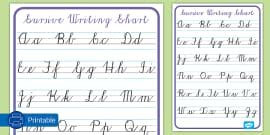 Cursive Writing Chart
Aa Bb Cc Dd
Ee Ff Gg Hh Ii
Jj Kk Ll Mm
Nn Oo Pp Qq
Printable
Cursive Writing Chart
Aa Bb Cc Dd
Ee Ff Gg Hh Ii
Jj Kk Ll Mm
Nn Oo Pp Qq
Rr Ss Tt Uu
Vv Ww Xx
Yy Zz